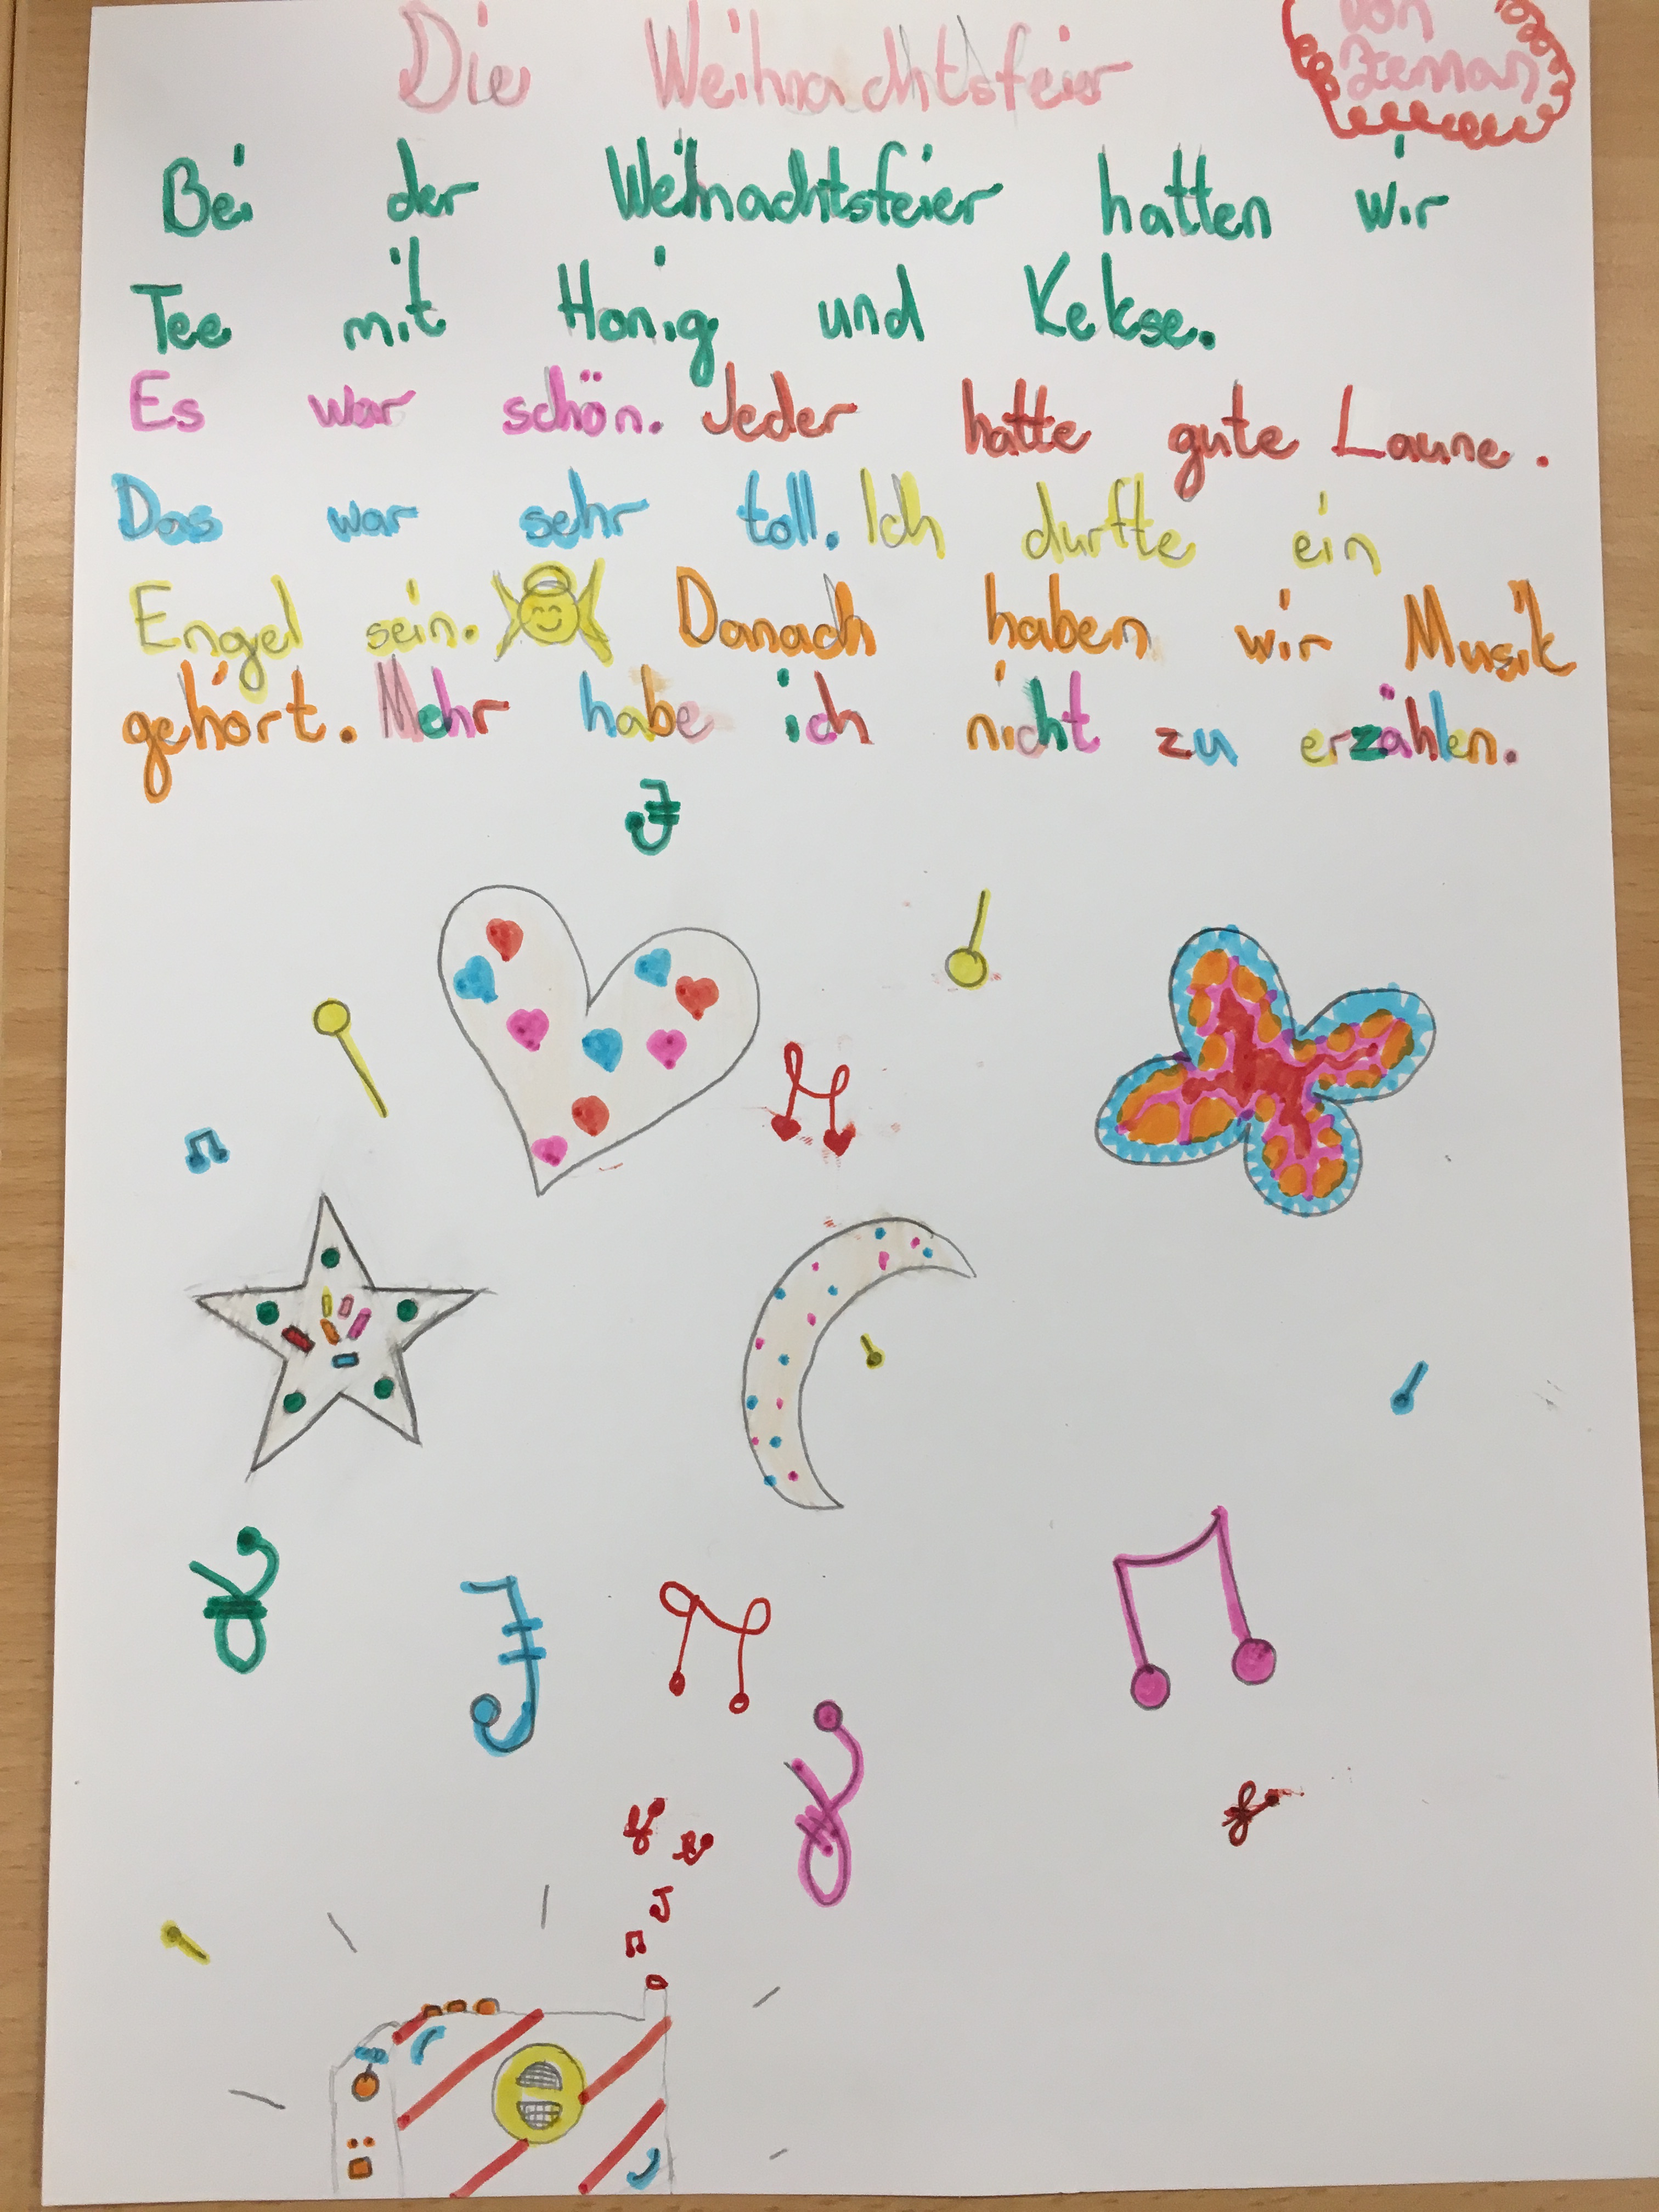 Die Weihnachtsfeir
von
Zeman
Bei der Weihnachtsfeier hatten wir
Tee mit Honig und Kekse.
Es war schön. Jeder hatte gute Laune.
Das war sehr toll. Ich durfte ein
Engel sein. Danach haben wir Musik
gehört. Mehr habe ich nicht zu erzählen.